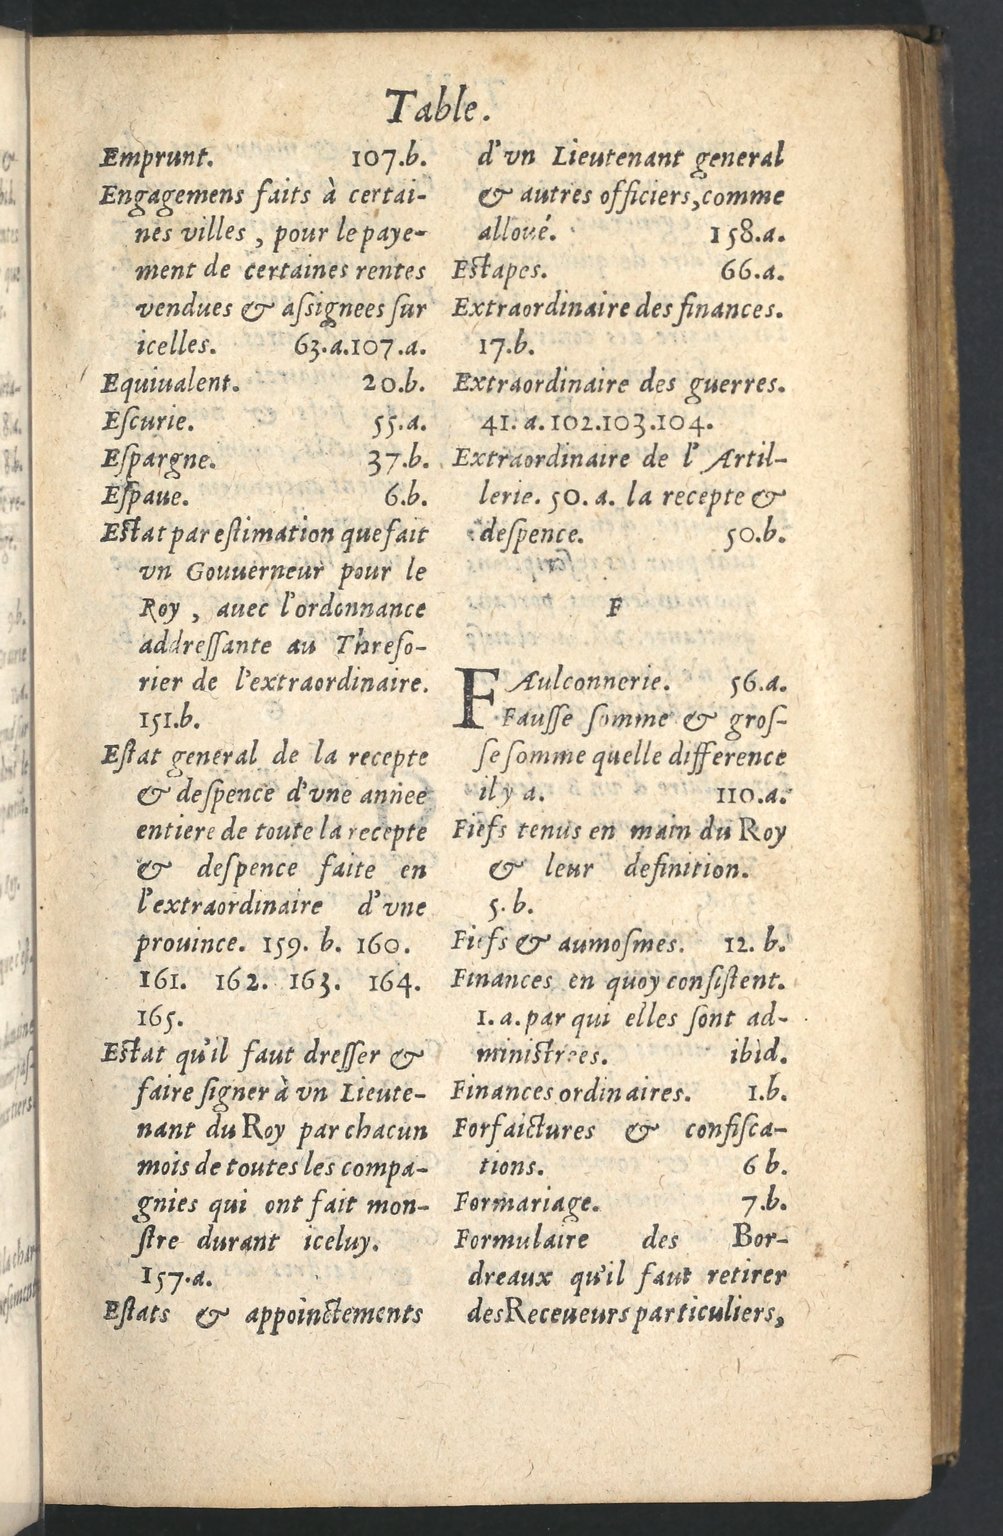 Table.
Emprunt. 107.b.
Engagemens faits à certai-
nes villes, pour le paye-
ment de certaines rentes
vendues & aſsignees ſur
icelles. 63.a.107.a.
Equiualent. 20.b.
Eſcurie. 55.a.
Eſpargne. 37.b.
Eſpaue. 6.b.
Eſtat par eſtimation que fait
vn Gouuerneur pour le
Roy, auec l'ordonnance
addreſſante au Threſo-
rier de l'extraordinaire.
151.b.
Eſtat general de la recepte
& deſpence d'vne annee
entiere de toute la recepte
& deſpence faite en
l'extraordinaire d'vne
prouince. 159. b. 160.
161. 162. 163. 164.
165.
Eſtat qu'il faut dreſſer &
faire ſigner à vn Lieute-
nant du Roy par chacun
mois de toutes les compa-
gnies qui ont fait mon-
ſtre durant iceluy.
157.a.
Eſtats & appoinctements
d'vn Lieutenant general
& autres officiers, comme
alloué. 158.a.
Eſtapes. 66.a.
Extraordinaire des finances.
17.b.
Extraordinaire des guerres.
41. a. 102.103.104.
Extraordinaire de l'Artil-
lerie. 50. a. la recepte &
deſpence. 50.b.
F
FAulconnerie. 56.a.
Fauſſe ſomme & groſ-
ſe ſomme quelle difference
il y a. 110.a.
Fiefs tenus en main du Roy
& leur definition.
5. b.
Fiefs & aumoſmes. 12. b.
Finances en quoy conſiſtent.
1. a. par qui elles ſont ad-
miniſtrees. ibid.
Finances ordinaires. 1.b.
Forfaictures & confiſca-
tions. 6 b.
Formariage. 7.b.
Formulaire des Bor-
dreaux qu'il faut retirer
des Receueurs particuliers,